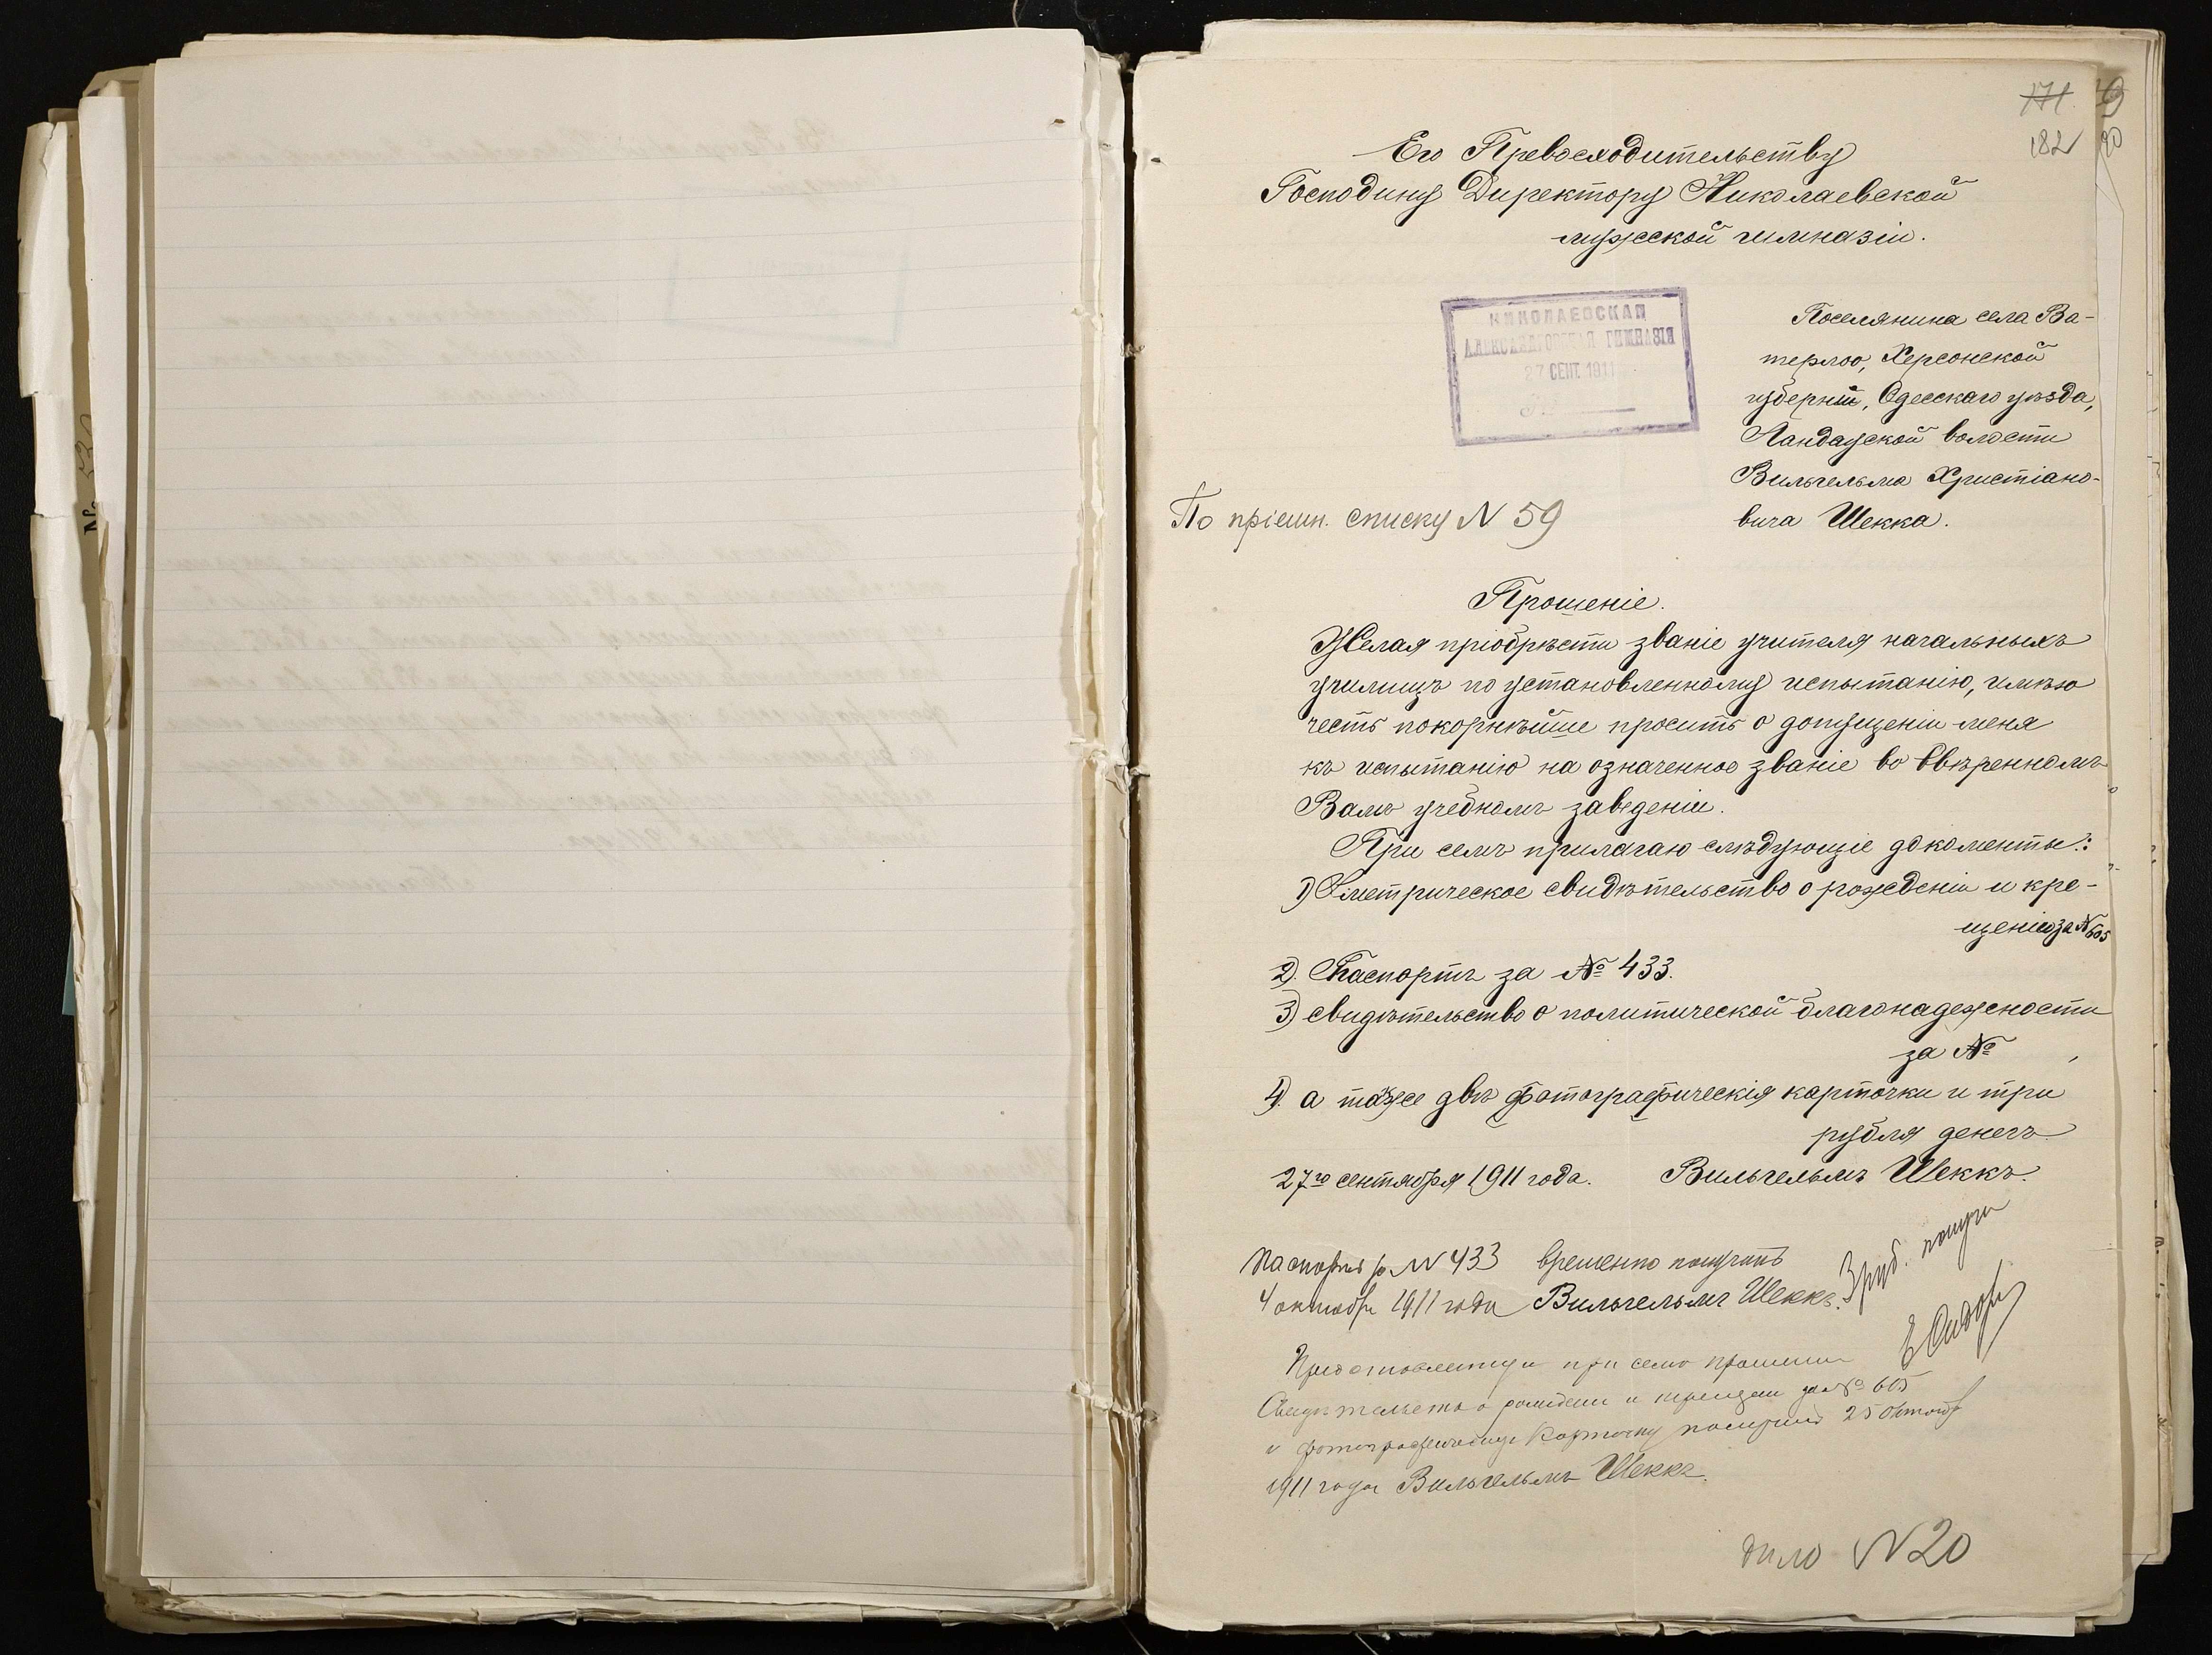 171. 9
182 90
Его Превосходительству
Господину Директору Николаевской
мужской гимназіи.
НИКОЛАЕВСКАЯ
АЛЕКСАНДРОВСКАЯ ГИМНАЗІЯ
27 СЕНТ. 1911
№
Поселянина села Ва-
терлоо, Херсонской
губерніи, Одесскаго уѣзда,
Ландауской волости
Вильгельма Христіано-
вича Шекка.
По пріемн. списку N 59
Прошеніе.
Желая пріобрѣсти званіе учителя начальныхъ
училищъ по установленному испытанію, имѣю
честь покорнѣйше просить о допущеніи меня
къ испытанію на означенное званіе во ввѣренномъ
Вамъ учебномъ заведеніи.
При семъ прилагаю слѣдующіе докоменты:
1) Метрическое свидѣтельство о рожденіи и кре-
щеніи за № 605
2). Паспортъ за № 433.
3) свидѣтельство о политической благонадежности
за №
4). а также двѣ фотографическія карточки и три
рубля денегъ
27го сентября 1911 года. Вильгельмъ Шеккъ.
Паспортъ за № 433 временно получилъ
4 октября 1911 года Вильгельмъ Шеккъ.
3 руб. получ
при семъ прошении
Свидѣтельство о рождении и крещении за № 605
и фотографическую карточку получилъ 25 Октября
1911 года Вильгельмъ Шеккъ.
дѣло N 20